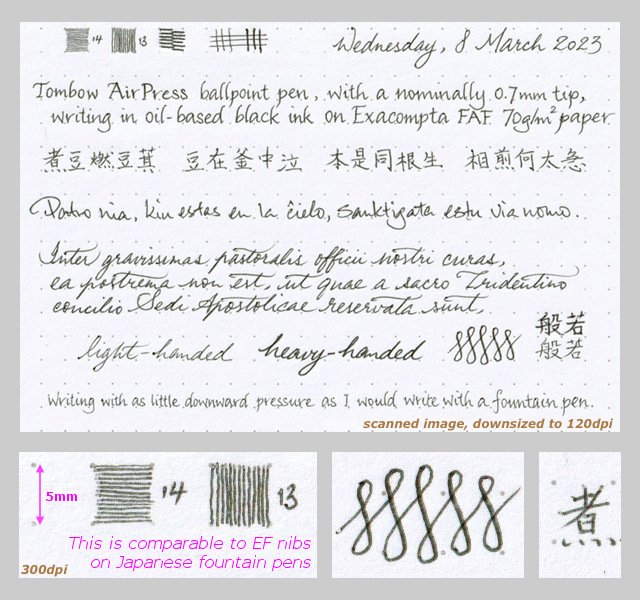 14 13 Wednesday, 8 March 2023
Tombow AirPress ballpoint pen, with a nominally 0.7mm tip,
writing in oil-based black ink on Exacompta FAF 70g/m² paper
煮豆燃豆萁 豆在釜中泣 本是同根生 相煎何太急
Patro nia, kiu estas en la ĉielo, sanktigata estu via nomo.
Inter gravissimas pastoralis officii nostri curas,
ea postrema non est, ut quae a sacro Tridentino
concilio Sedi Apostolicae reservata sunt,
light-handed heavy-handed 般若
般若
Writing with as little downward pressure as I would write with a fountain pen.
scanned image, downsized to 120dpi
5mm 14 13 煮
This is comparable to EF nibs
on Japanese fountain pens
300dpi